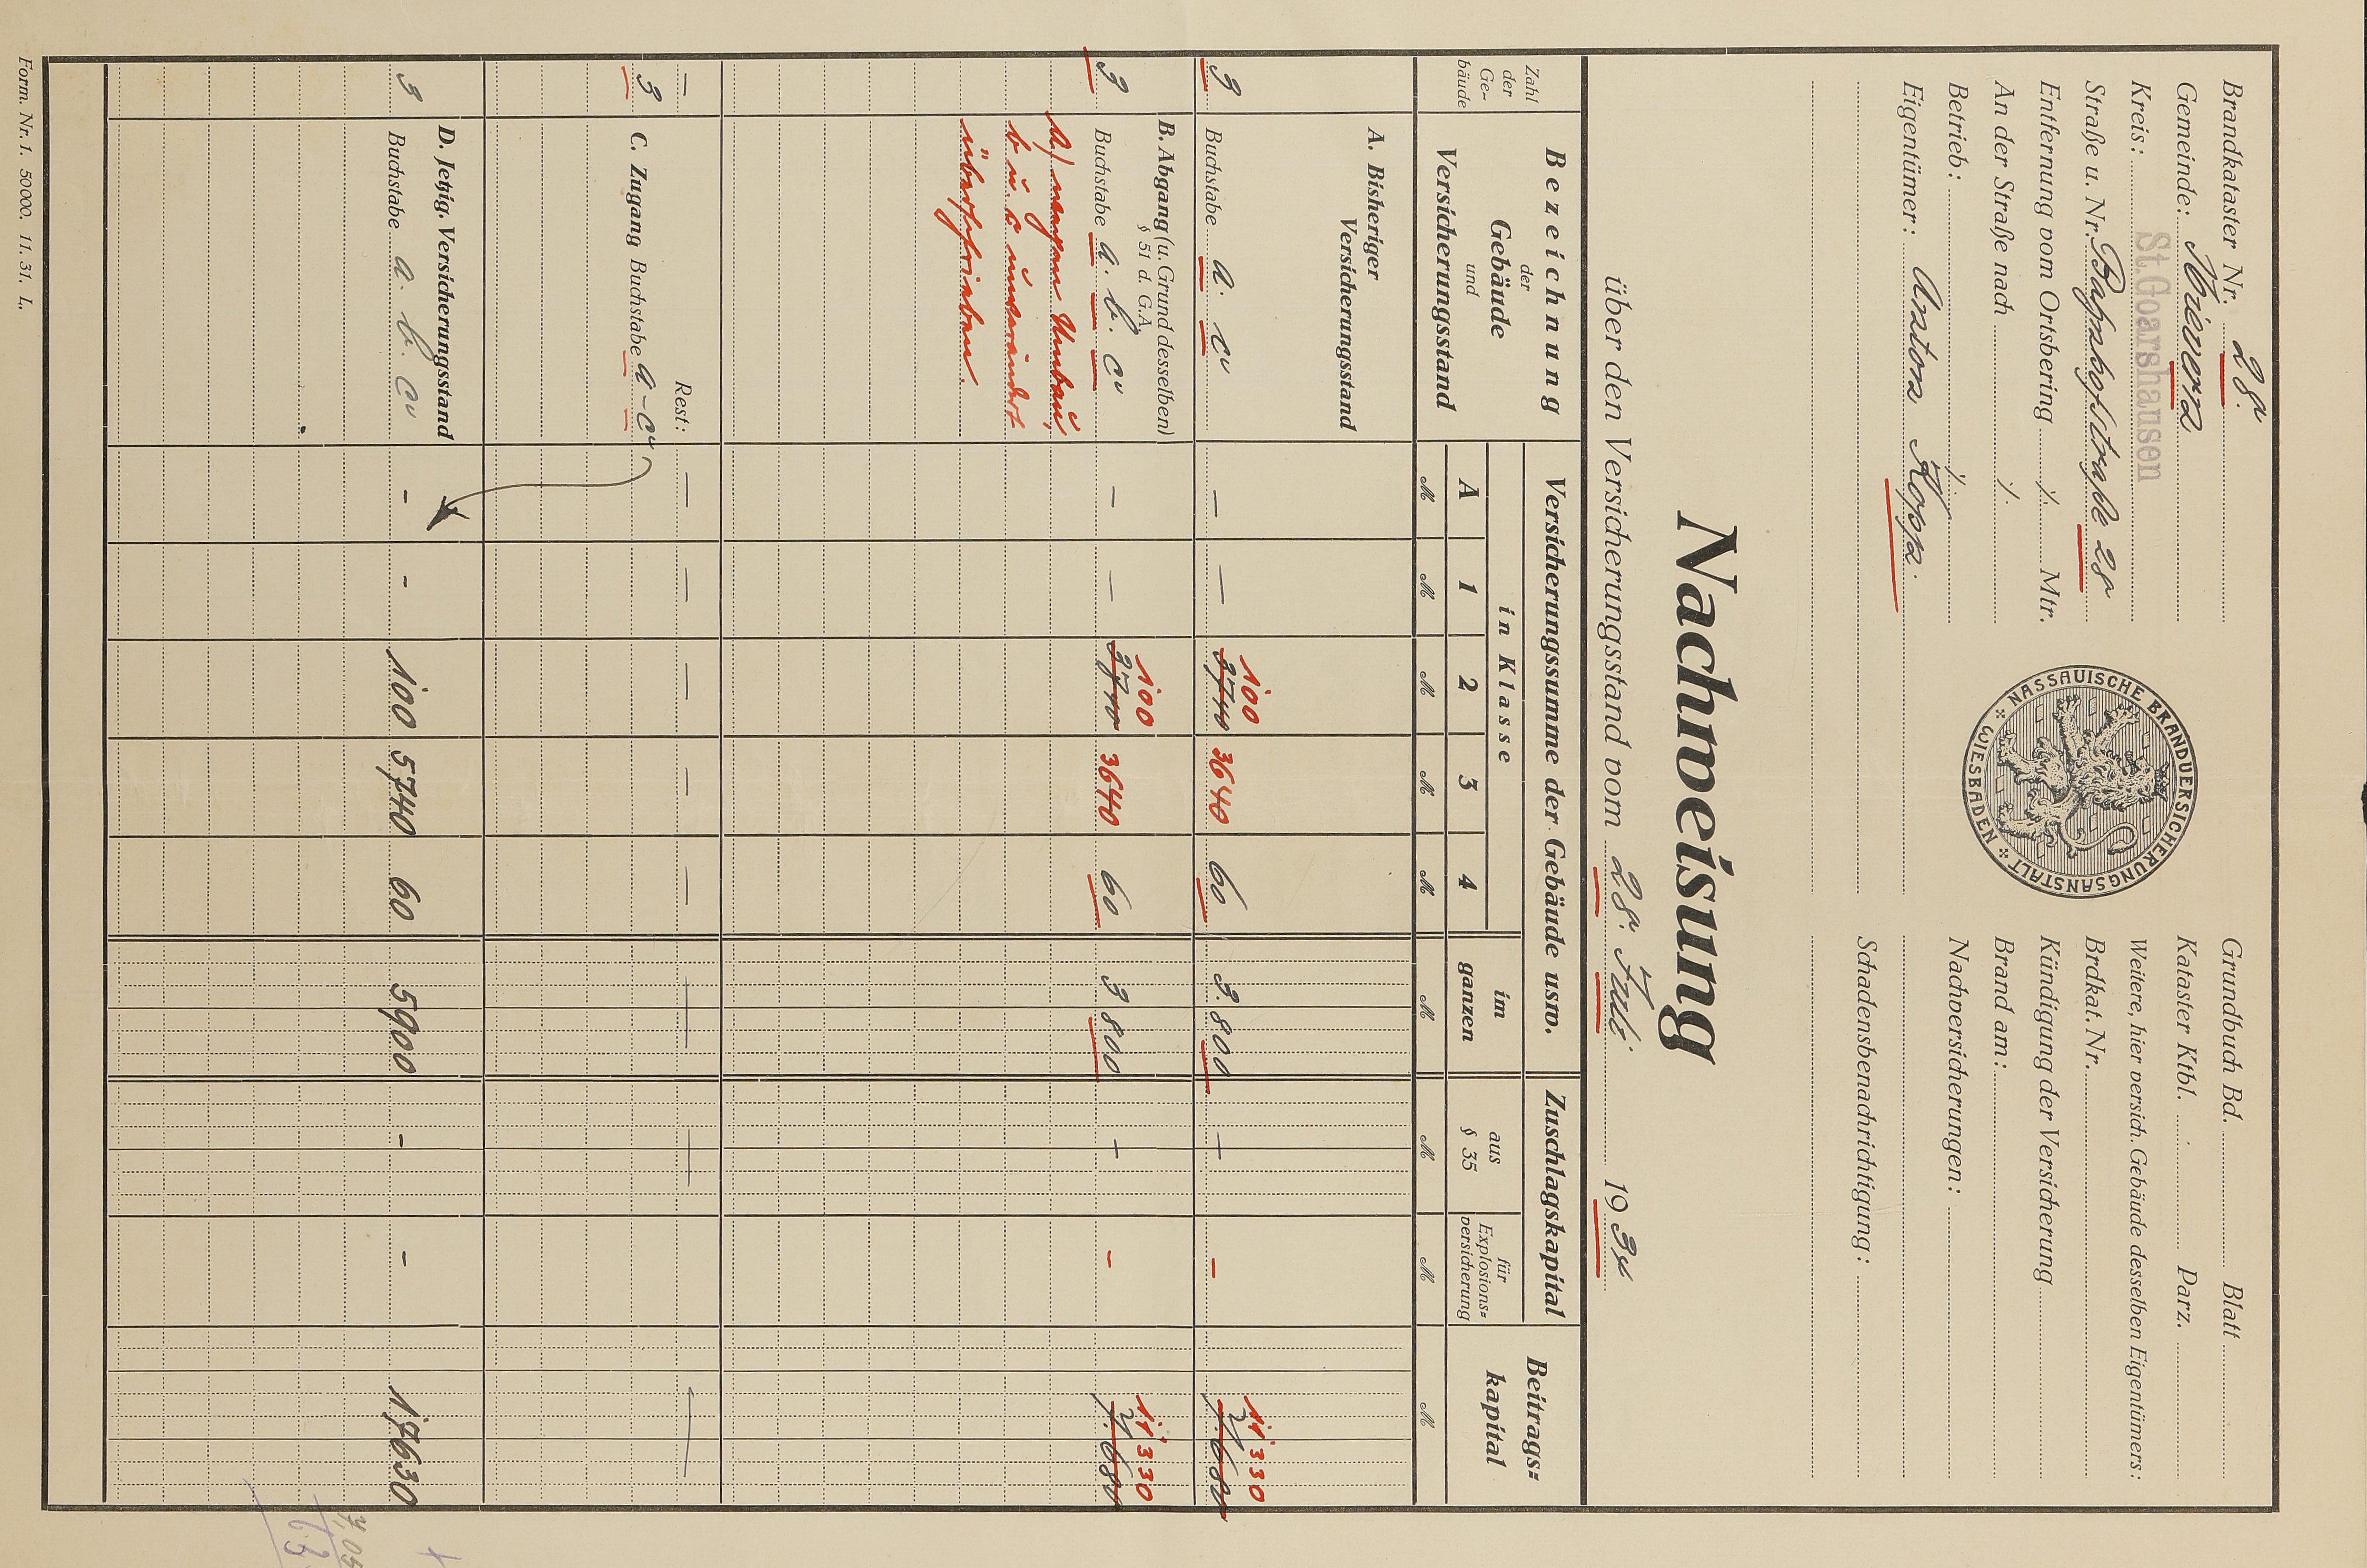 Brandkataster Nr. 28.
Gemeinde: Nievern
Kreis: St. Goarshausen
Straße u. Nr. Bahnhofstraße 28
Entfernung vom Ortsbering ./. Mtr.
An der Straße nach ./.
Betrieb: ./.
Eigentümer: Anton Kopp.
NASSAUISCHE BRANDVERSICHERUNGSANSTALT
WIESBADEN
Grundbuch Bd. Blatt
Kataster Ktbl. Parz.
Weitere, hier versich. Gebäude desselben Eigentümers:
Brdkat. Nr.
Kündigung der Versicherung
Brand am:
Nachversicherungen:
Schadensbenachrichtigung:
Nachweisung
über den Versicherungsstand vom 28. Juli 1934
Zahl der Ge-bäude
Bezeichnung
der
Gebäude
und
Versicherungsstand
Versicherungssumme der Gebäude usw.
in Klasse
A 1 2 3 4
im ganzen
Zuschlagskapital
aus § 35
für Explosions=versicherung
Beitrags=kapital
M M M M M M M M M
A. Bisheriger
Versicherungsstand
100 11'330
3 Buchstabe a. c — — 3740 3640 60 3.800 — - 7.680
B. Abgang (u. Grund desselben)
§ 51 d. G.A.
100 11'330
3 Buchstabe a. b. c — — 3740 3640 60 3 800 — - 7.680
a) wegen Umbau,
b u. c unverändert
überschrieben.
— Rest: — — — — — — — —
3 C. Zugang Buchstabe a-c
D. Jetzig. Versicherungsstand
3 Buchstabe a. b. c - - 100 5740 60 5900 - - 17630
Form. Nr. 1. 50000. 11. 31. L.